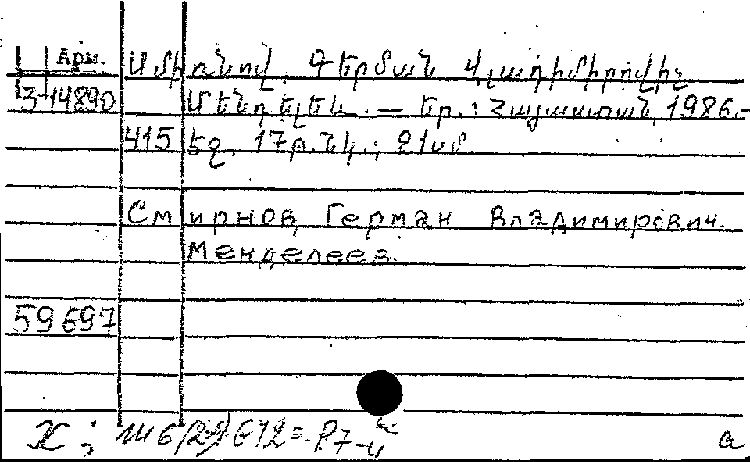 Арм. Սմիռնով, Գերման Վլադիմիրովիչ
3-14890 Մենդելեև. — Եր.: Հայաստան, 1986.-
415 էջ, 17թ. նկ.; 21սմ.
Смирнов, Герман Владимирович.
Менделеев.
59697
а